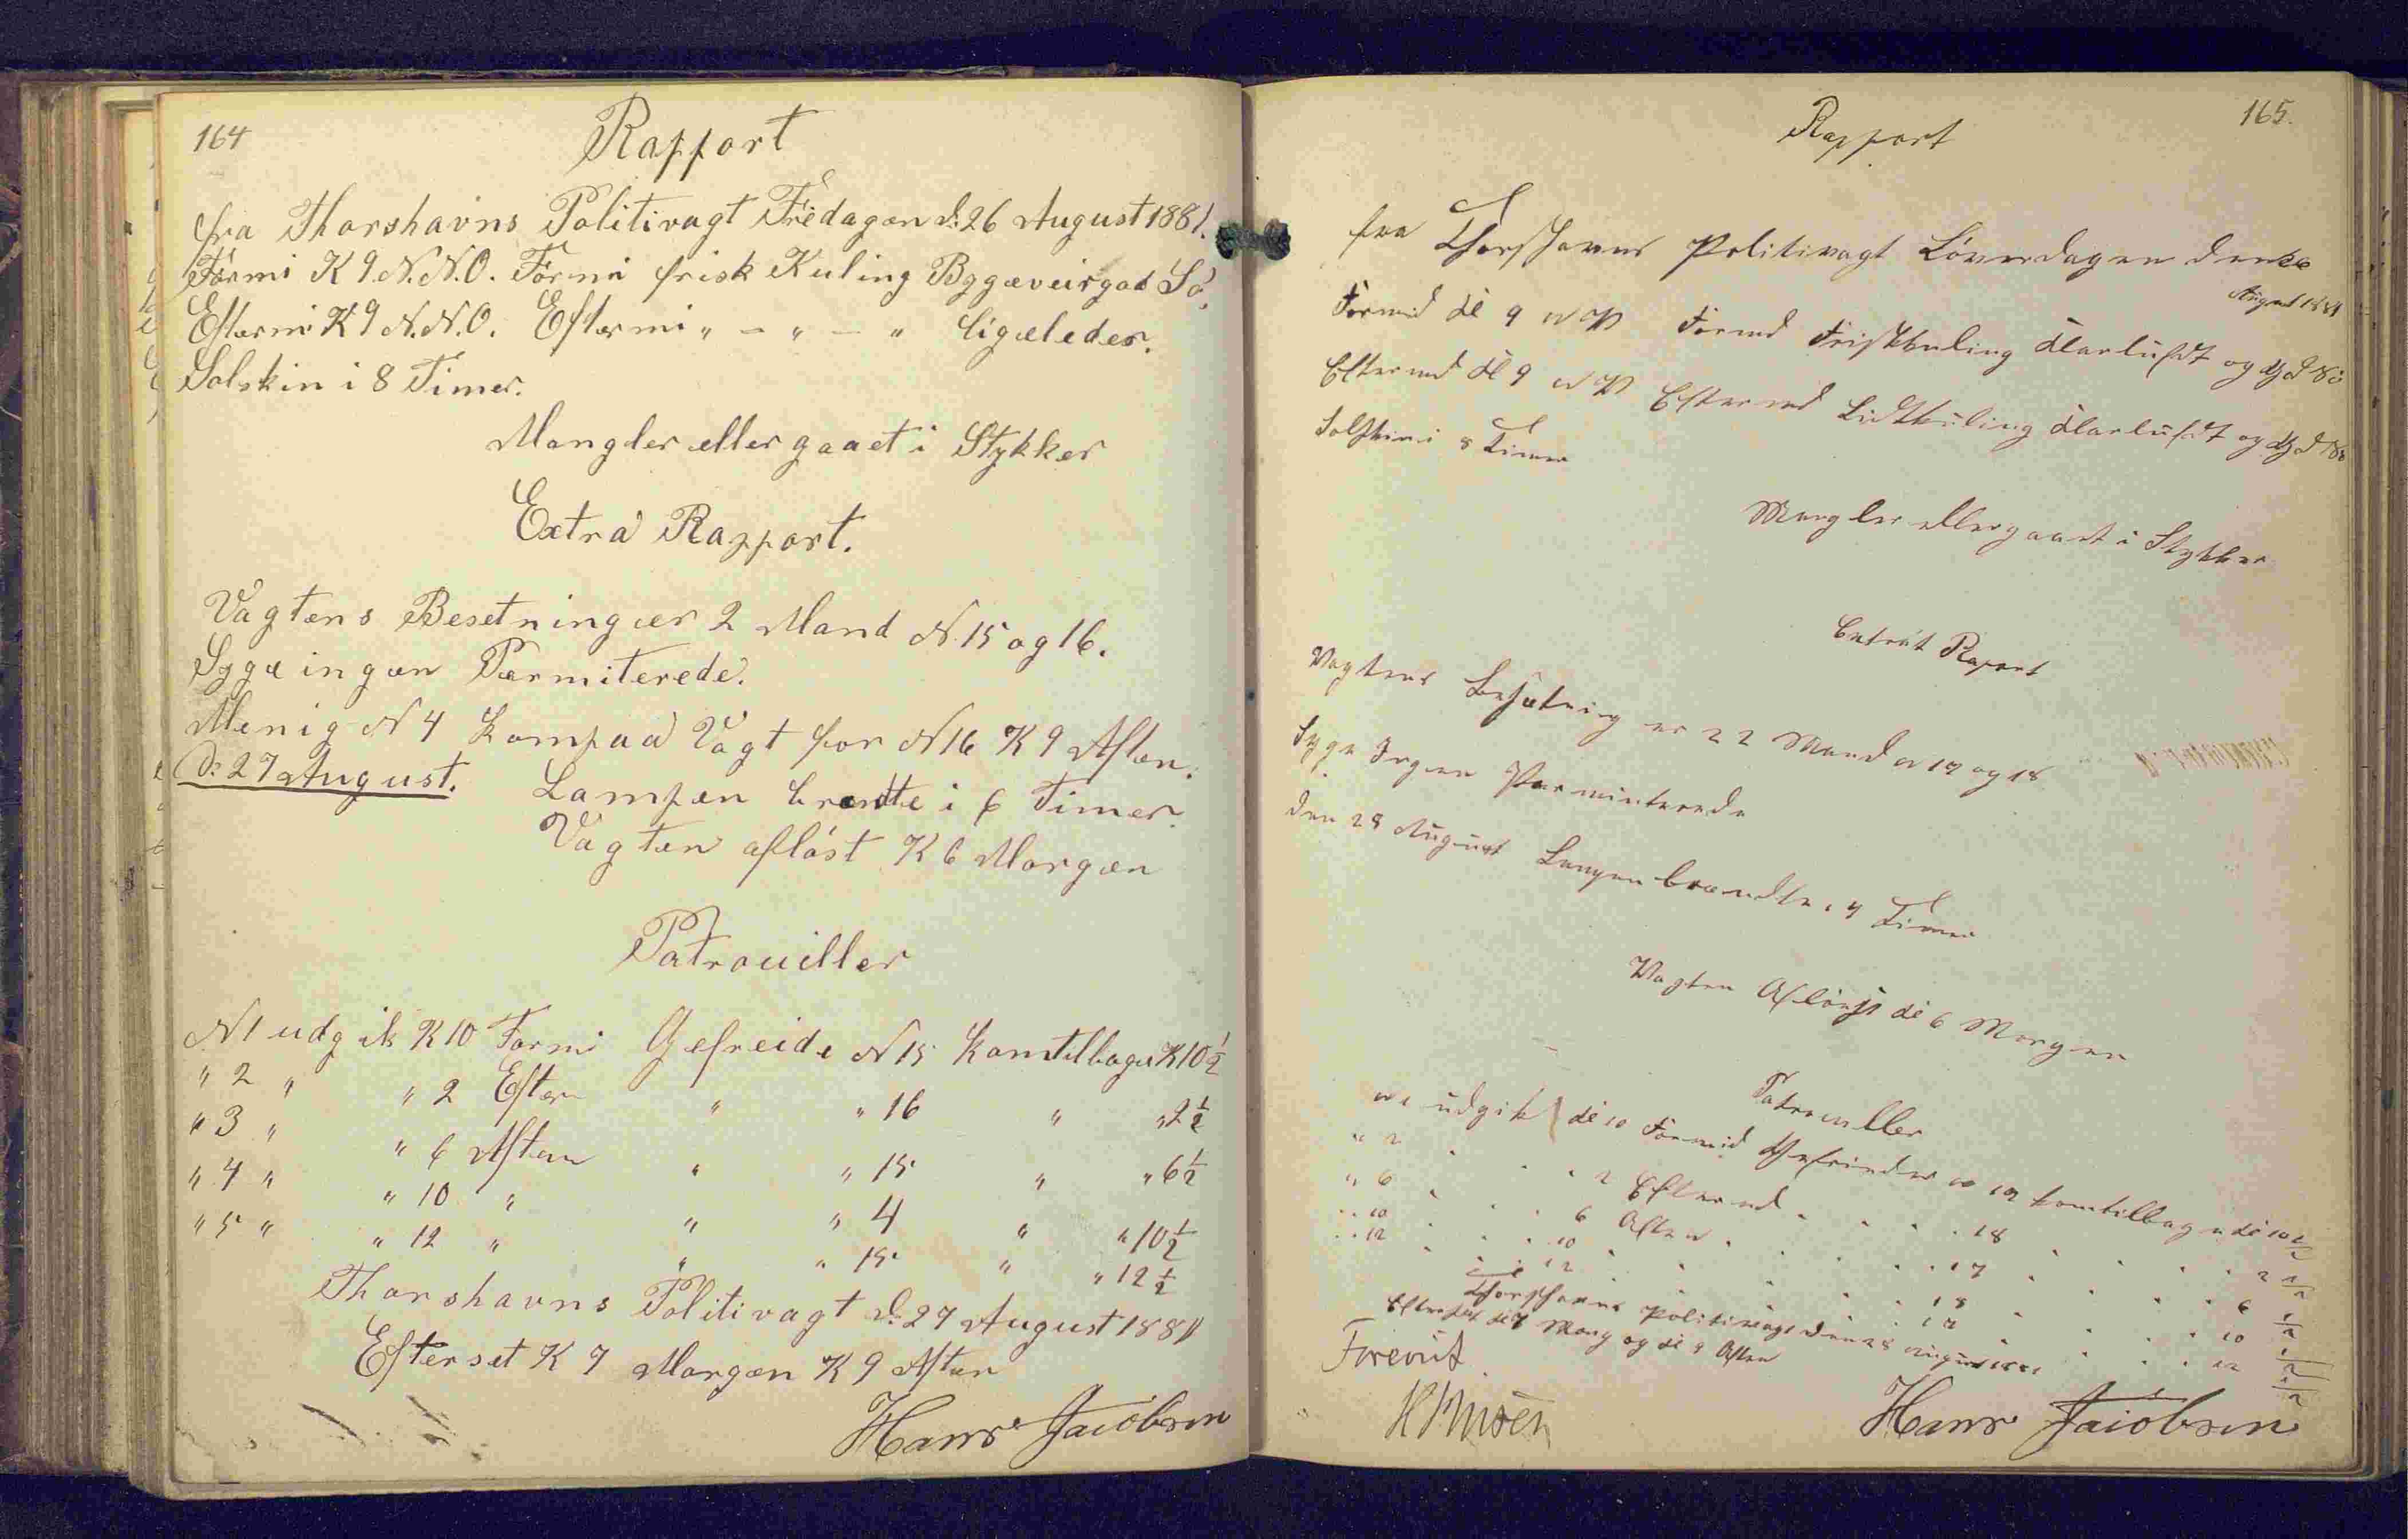 164
Rapport
fra Thorshavns Politivagt Fredagen d: 26 August 1881.
Formi K 9. N.N.O. Formi frisk Kuling Bygeveirgod Sö.
Eftermi K 9 N.N.O. Eftermi " – " – " ligeledes.
Solskin i 8 Timer.
Mangler eller gaaet i Stykker
Extra Rapport.
Vagtens Besetning er 2 Mand N. 15 og 16.
Syge ingen Permiterede.
Menig N 4 kom paa Vagt for N 16 K 9 Aften.
D: 27 August. Lampen brendte i 6 Timer.
Vagten aflöst K 6 Morgen
Patrouiller
N 1 udgik K 10 Formi Gefreide N 15 kom tilbage K 10 1/2
" 2 " " 2 Efter " " 16 " " 2 1/2
" 3 " " 6 Aften " " 15 " " 6 1/2
" 4 " " 10 " " " 4 " " 10 1/2
" 5 " " 12 " " " 15 " " 12 1/2
Thorshavns Politivagt d: 27 August 1881
Efterset K 7 Morgen K 9 Aften
Hans Jacobsen
165.
Rapport
fra Thorshavns Politivagt Löverdagen den
August 1881
Formid Kl 9 N Formd Frisk Kuling Klarluft og
Eftermd Kl 9 N Eftermd Lidt Kuling Klarluft og
Solskin i 8 Timer
Mangler eller gaaet i Stykker
Rapport
Vagtens Besætning er 2 Mand N 17 og 18
Syge Ingen Perminterede
den 28 August Lampen brændte i 4 Timer
Vagten Aflöst Kl 6 Morgen
Patrouller
N 1 udgik Kl 10 Formid Gefrieder N 17 kom tilbage Kl 10 1/2
" 2 " " 2 Eftermd " " 18 " " 2 1/2
" 6 " " 6 Aften " " 17 " " 6 1/2
" 10 " " 10 " " " 18 " " 10 1/2
" 12 " " 12 " " " 17 " " 12 1/2
Thorshavns Politivagt den 28 August 1881
Efterset Kl 7 Morg og Kl 9 Aften
Forevist
Hans Jacobsen